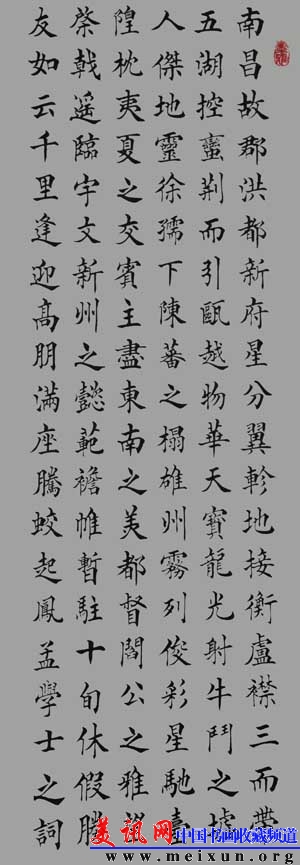 南昌故郡洪都新府星分翼軫地接衡盧襟三而帶
五湖控蠻荊而引甌越物華天寶龍光射牛鬥之墟
人傑地靈徐孺下陳蕃之榻雄州霧列俊彩星馳臺
隍枕夷夏之交賓主盡東南之美都督閻公之雅望
棨戟遙臨宇文新州之懿範襜帷暫駐十旬休假勝
友如云千里逢迎高朋滿座騰蛟起鳳孟學士之詞
美讯网 中国书画收藏频道
www.meixun.net